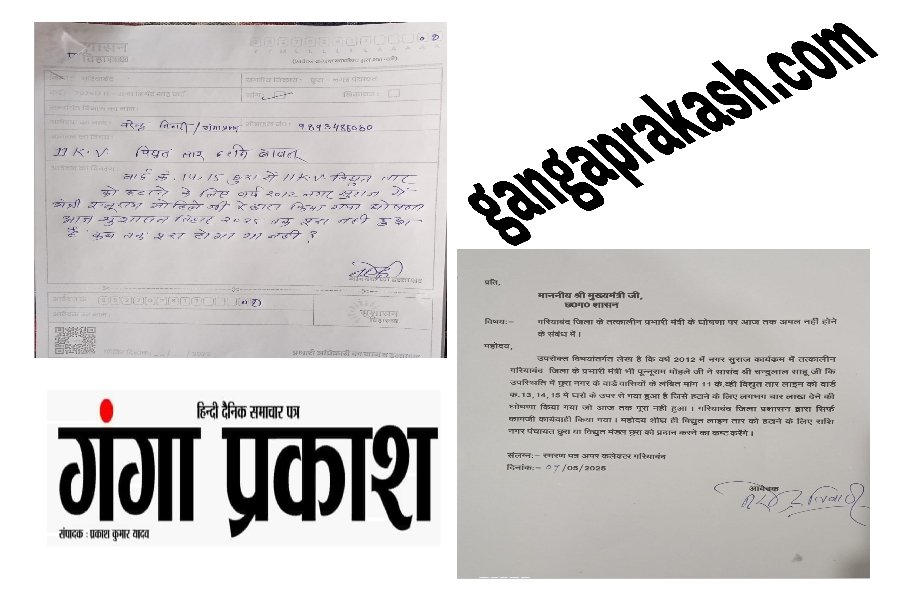 शासन
तिहार
जिला गरियाबंद
नगरीय निकाय छुरा नगर पंचायत
मांग
शिकायत
9893488060
11 K.V विद्युत तार हटाने बाबत्
वार्ड क्र. 14, 15 छुरा में 11 K.V विद्युत तार
को हटाने के लिए वर्ष 2012 नगर सुराज में
मंत्री पुन्नूराम मोहिले जी के द्वारा किया गया घोषणा
आज सुशासन तिहार 2025 तक पूरा नहीं हुआ
है कब तक पूरा होगा या नहीं ?
सुशासन
तिहार
gangaprakash.com
प्रति,
माननीय श्री मुख्यमंत्री जी,
छ0ग0 शासन
विषय:- गरियाबंद जिला के तत्कालीन प्रभारी मंत्री के घोषणा पर आज तक अमल नहीं होने
के संबंध में।
महोदय,
उपरोक्त विषयांतर्गत लेख है कि वर्ष 2012 में नगर सुराज कार्यक्रम में तत्कालीन
गरियाबंद जिला के प्रभारी मंत्री भी पून्नूराम मोहले जी ने सासंद श्री चन्दुलाल साहू जि कि
उपस्थिति में छुरा नगर के वार्ड वासियों के लंबित मांग 11 के.व्ही विद्युत तार लाइन को वार्ड
क.13, 14, 15 में घरों के उपर से गया हुआ है जिसे हटाने के लिए लगभग चार लाख देने की
घोषणा किया गया जो आज तक पूरा नही हुआ । गरियाबंद जिला प्रशासन द्वारा सिर्फ
कागजी कार्यवाही किया गया । महोदय शीघ्र ही विद्युत लाइन तार को हटाने के लिए राशि
नगर पंचायत छुरा या विद्युत मंडल छुरा को प्रदान करने का कष्ट करेंगे।
संलग्न:- स्मरण पत्र अपर कलेक्टर गरियाबंद
दिनांक:- 07/05/2025
आवेदक
हिन्दी दैनिक समाचार पत्र
गंगा प्रकाश
संपादक : प्रकाश कुमार यादव